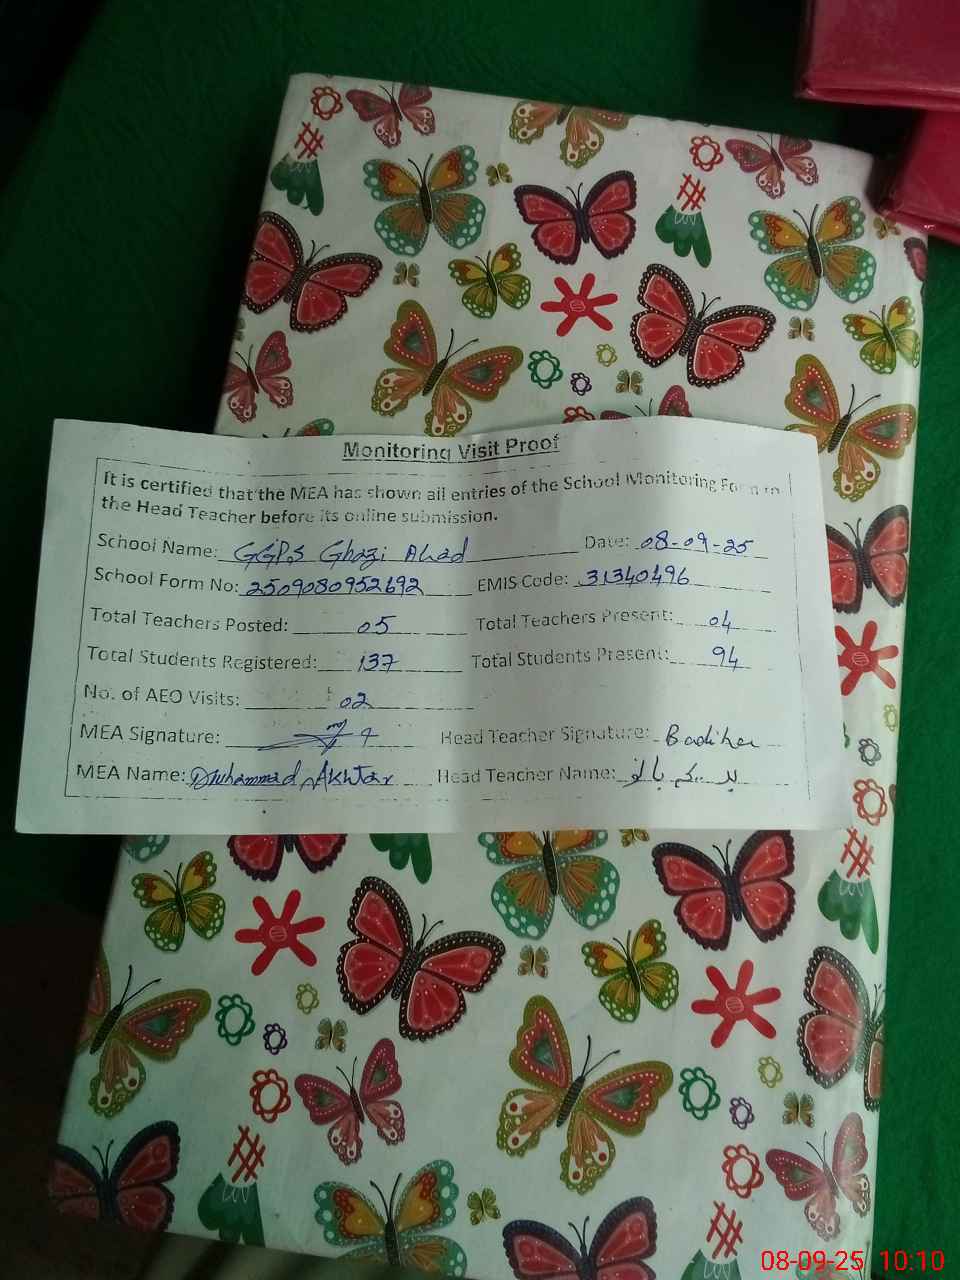 Monitoring Visit Proof
It is certified that the MEA has shown all entries of the School Monitoring Form to
the Head Teacher before its online submission.
School Name: GGPS Ghazi Ahad Date: 08-09-25
School Form No: 2509080952692 EMIS Code: 31340496
Total Teachers Posted: 05 Total Teachers Present: 04
Total Students Registered: 137 Total Students Present: 94
No. of AEO Visits: 02
MEA Signature: Head Teacher Signature: Badiha
MEA Name: Muhammad Akhtar Head Teacher Name:
08-09-25 10:10